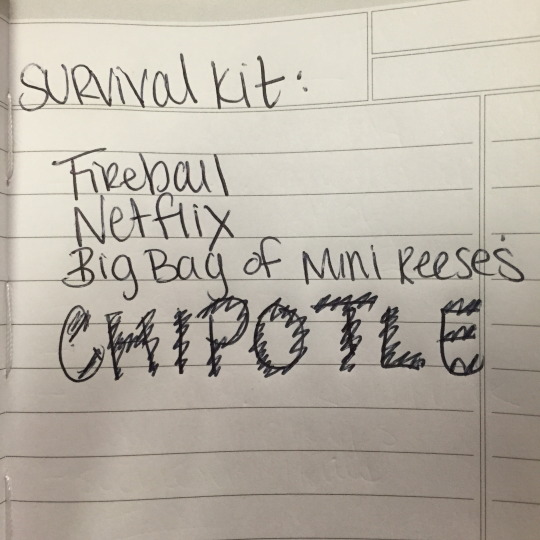 SURVIVAL Kit:
Fireball
Netflix
Big Bag of Mini Reese's
CHIPOTLE